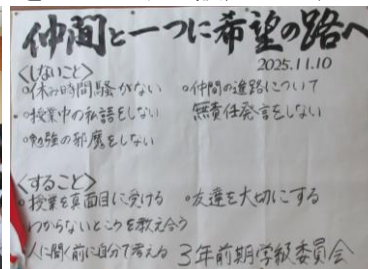 仲間と一つに希望の路へ
2025.11.10
<しないこと>
○休み時間騒がない
○授業中の私語をしない
○勉強の邪魔をしない
○仲間の進路について
無責任発言をしない
<すること>
○授業を真面目に受ける
わからないところを教え合う
人に聞く前に自分で考える
○友達を大切にする
3年前期学級委員会